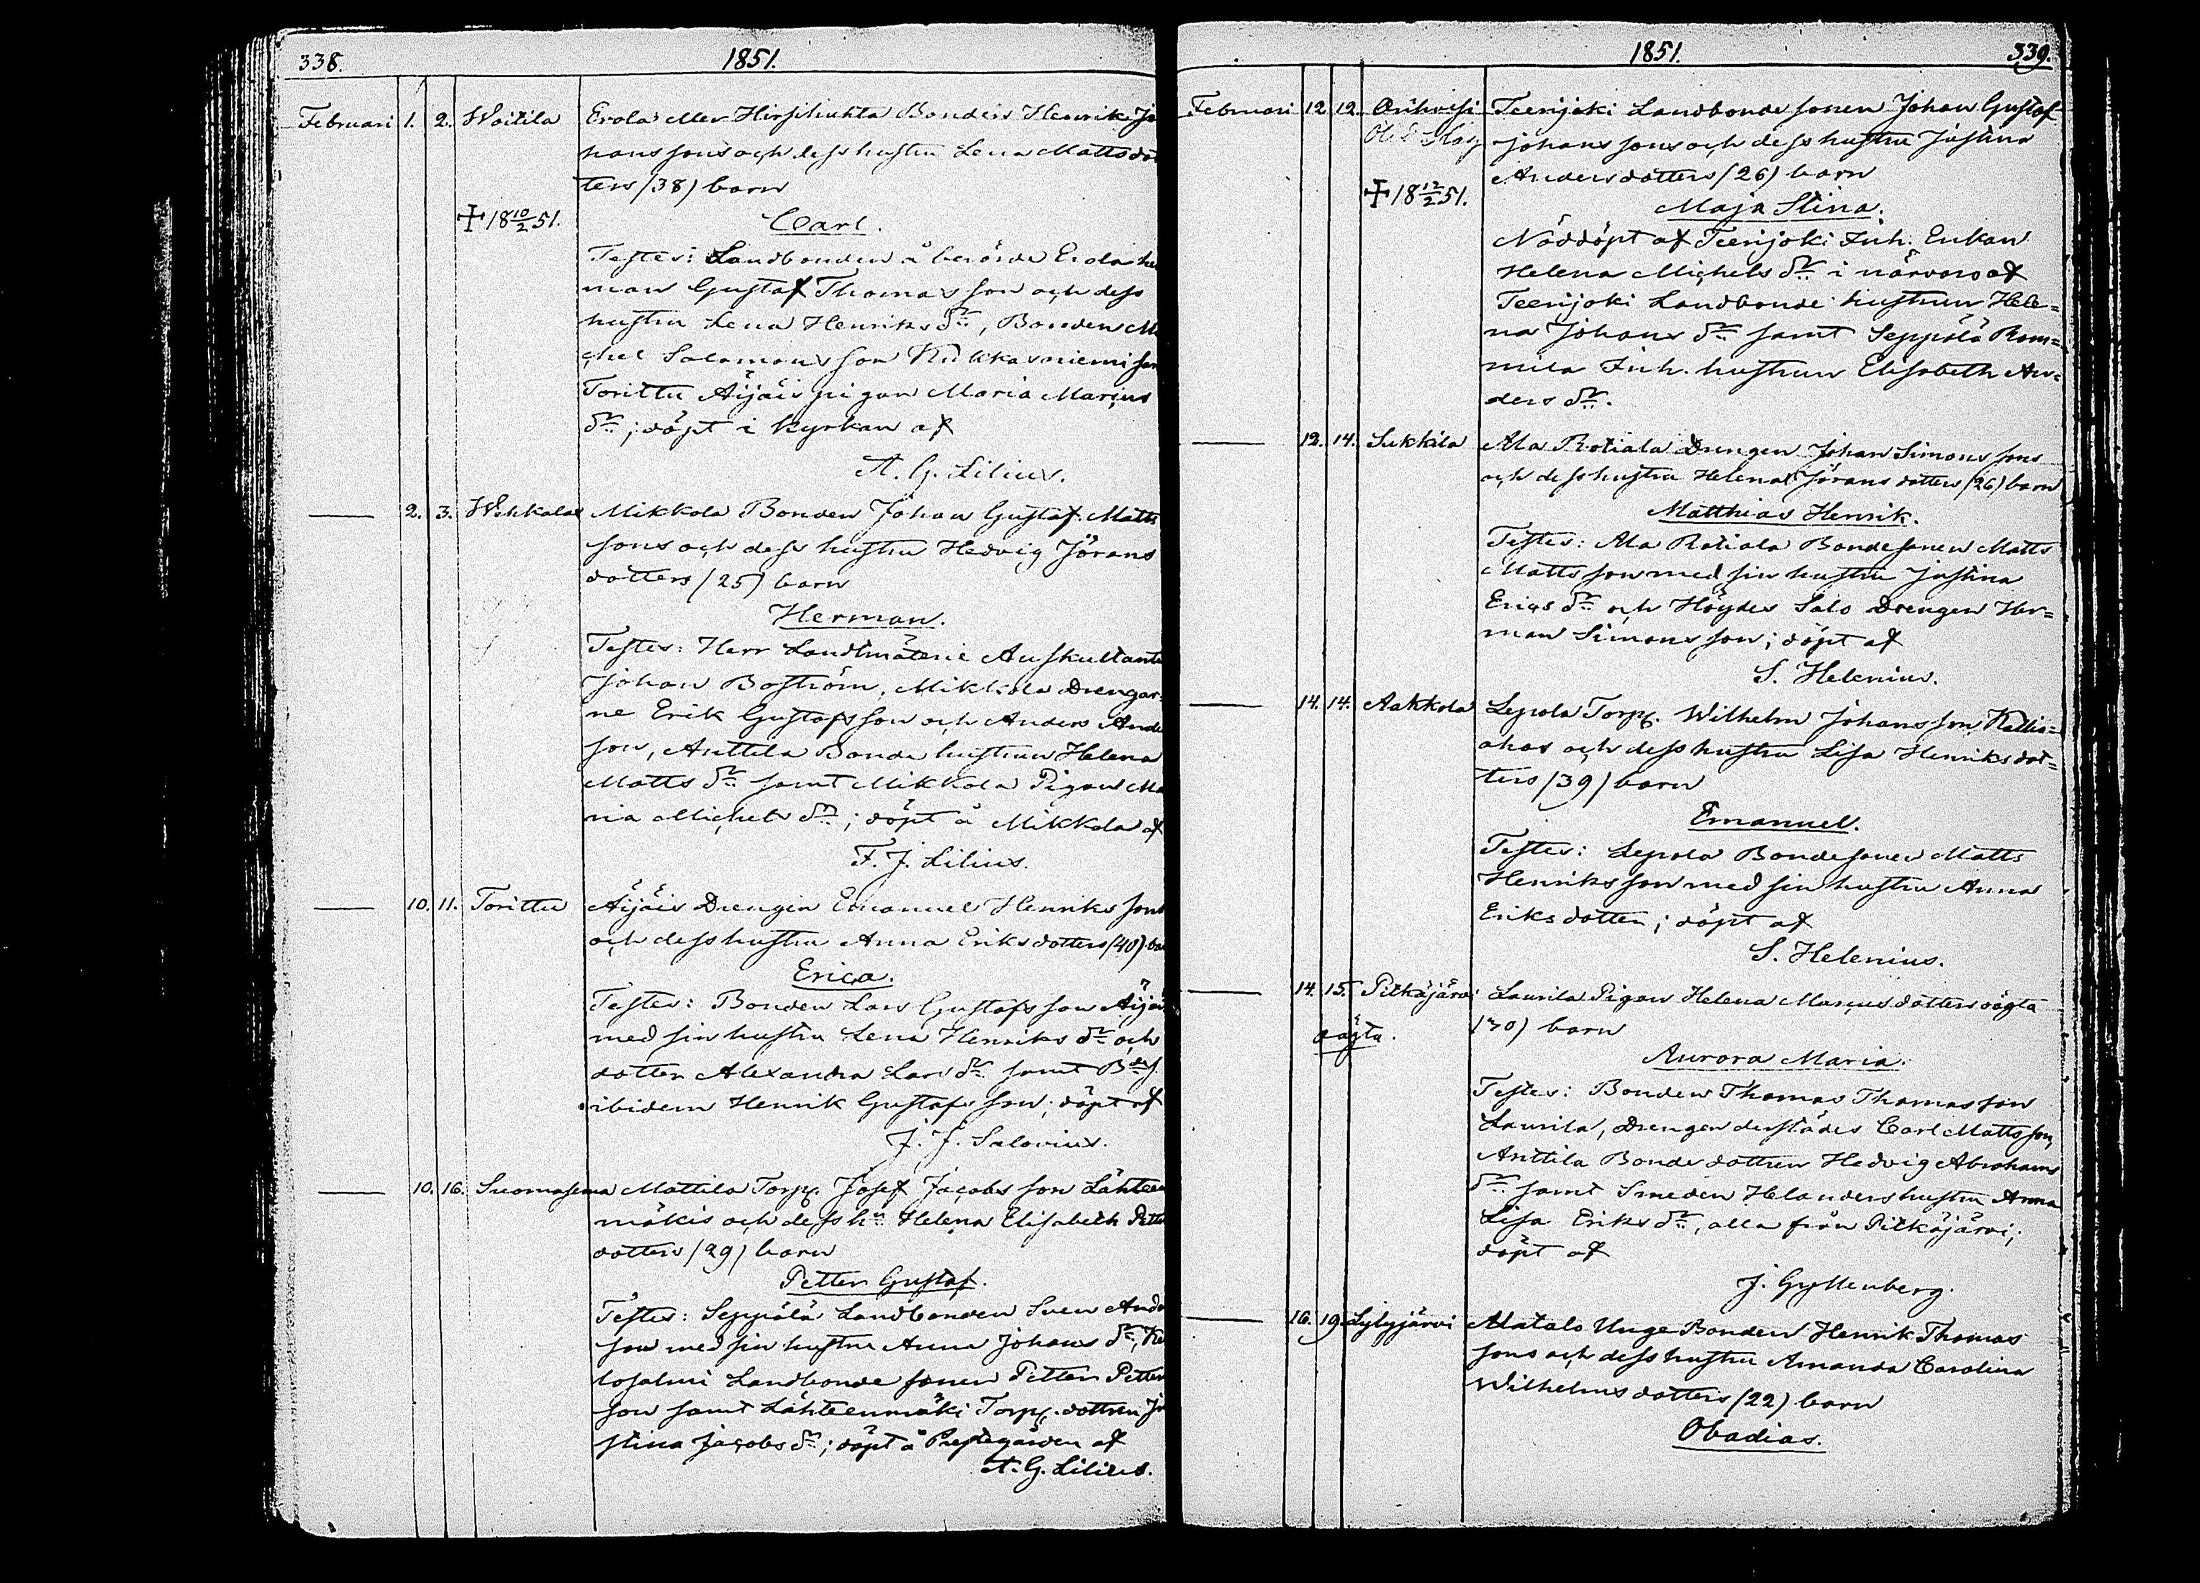 338. 1851.
Februari 1. 2. Woitila Erola eller Hirsihuhta Bondens Henrik Jo
hans sons och dess hustru Lena Matts dot
ters (38) barn
✝ 18 10/2 51. Carl.
Testes: Landbonden å berörde Erola hem
man Gustaf Thomas son och dess
hustru Lena Henriks dr, Bonden Mi
chel Salomons son Kukkasniemi samt
Torittu Äijäis pigan Maria Marcus
dr; döpt i kyrkan af
A. G. Lilius.
2. 3. Wehkalax Mikkola Bonden Johan Gustaf Matts
sons och dess hustru Hedvig Jörans
dotters (25) barn
Herman.
Testes: Herr Landtmäterie Auskultanten
Johan Boström, Mikkola Drengar
ne Erik Gustafs son och Anders Anders
son, Anttila Bonde hustrun Helena
Matts dr samt Mikkola Pigan Ma
ria Michels dr; döpt å Mikkola af
F. J. Lilius.
10. 11. Torittu Äijäis Drengen Emanuel Henriks sons
och dess hustru Anna Eriks dotters (40) barn
Erica.
Testes: Bonden Lars Gustafs son Äijäi
med sin hustru Lena Henriks dr och
dotter Alexandra Lars dr samt Bdes.
ibidem Henrik Gustafs son; döpt af
J. F. Salovius.
10. 16. Suomasema Mattila Torp. Josef Jacobs son Lähteen
mäkis och dess h:u Helena Elisabeth Petters
dotters (29) barn
Petter Gustaf.
Testes: Seppälä Landbonden Sven Anders
son med sin hustru Anna Johans dr,
losalmi Landbonde sonen Petter Petters
son samt Lähteenmäki Torp. dottren Ju
stina Jacobs dr; döpt å Prestegården af
A. G. Lilius.
1851. 339.
Februari 12 12. Orihvesi Teerijoki Landbonde sonen Johan Gustaf
Johans sons och dess hustru Justina
Anders dotters (26) barn
✝ 18 12/2 51. Maja Stina.
Nöddöpt af Teerijoki Inh. Enkan
Helena Michels dr i närvaro af
Teerijoki Landbonde hustrun Hele=
na Johans dr samt Seppälä Rom=
mila Inh. hustrun Elisabeth An=
ders dr.
12. 14. Sukkila Ala Rotiala Drengen Johan Simons sons
och dess hustru Helena Jörans dotters (26) barn
Matthias Henrik.
Testes: Ala Rotiala Bonde sonen Matts
Matts son med sin hustru Justina
Erics dr och Höydes Salo Drengen Her=
man Simons son; döpt af
S. Helenius.
14. 14. Aakkola Lepola Torp. Wilhelm Johans son Kallio=
ahos och dess hustru Lisa Henriks dot=
ters (39) barn
Emanuel.
Testes: Lepola Bonde sonen Matts
Henriks son med sin hustru Anna
Eriks dotter; döpt af
S. Helenius.
14. 15. Pitkäjärvi Laurila Pigan Helena Marcus dotters oägta
oägta. (30) barn
Aurora Maria.
Testes: Bonden Thomas Thomas son
Laurila, Drengen derstädes Carl Matts son,
Anttila Bonde dottren Hedvig Abrahams
dr samt Smeden Helanders hustru Anna
Lisa Eriks dr, alla från Pitkäjärvi;
döpt af
J. Gyllenberg.
16. 19. Lylyjärvi Alatalo Unge Bonden Henrik Thomas
sons och dess hustru Amanda Carolina
Wilhelms dotters (22) barn
Obadias.